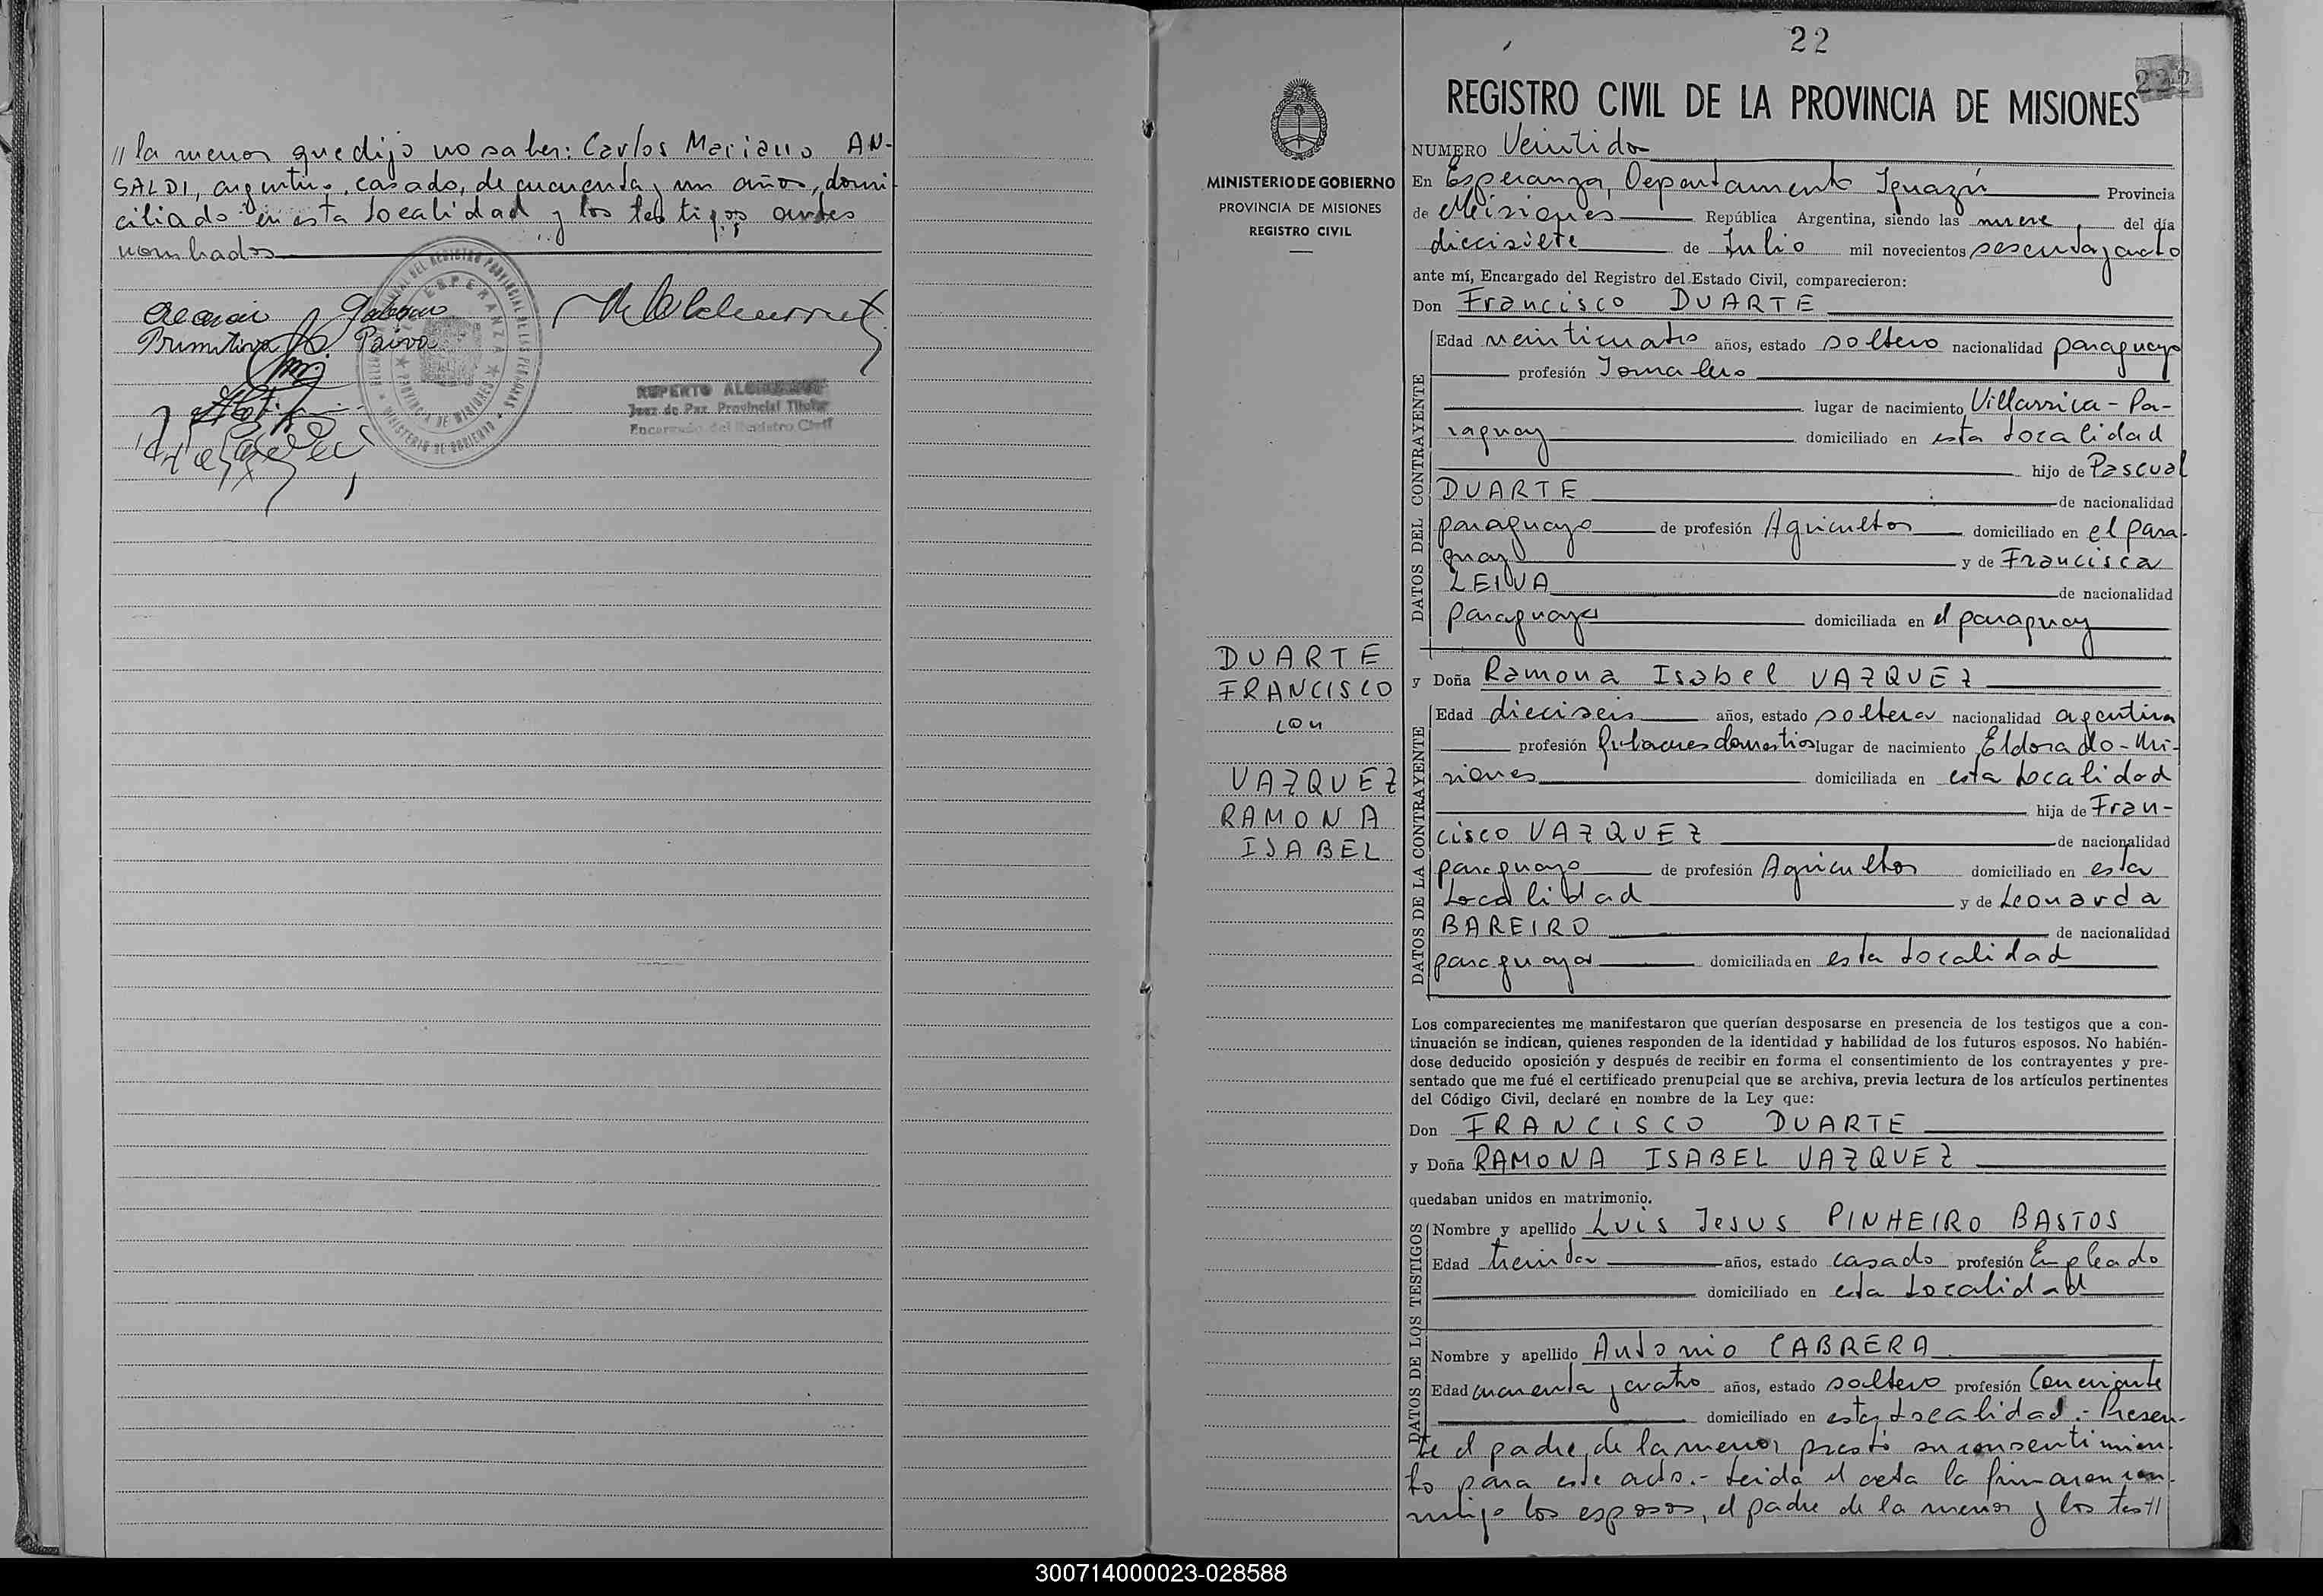 // la menor que dijo no saber: Carlos Mariano AN-
SALDI, argentino, casado, de cincuenta y un años, domi-
ciliado en esta Localidad y los testigos antes
nombrados
Primitiva Paiva
ESPERANZA
PROVINCIA DE MISIONES
MINISTERIO DE GOBIERNO
RUPERTO
Juez de Paz Provincial Titular
Encargado del Registro Civil
22
REGISTRO CIVIL DE LA PROVINCIA DE MISIONES
MINISTERIO DE GOBIERNO
PROVINCIA DE MISIONES
REGISTRO CIVIL
NUMERO Veintidos
En Esperanza, Departamento Iguazú Provincia
de Misiones República Argentina, siendo las nueve del día
diecisiete de Julio mil novecientos sesenta y cuatro
ante mí, Encargado del Registro del Estado Civil, comparecieron:
Don Francisco DUARTE
DATOS DEL CONTRAYENTE
Edad veinticuatro años, estado soltero nacionalidad paraguayo
profesión Jornalero
lugar de nacimiento Villarrica - Pa-
raguay domiciliado en esta Localidad
hijo de Pascual
DUARTE de nacionalidad
paraguayo de profesión Agricultor domiciliado en el para-
guay y de Francisca
LEIVA de nacionalidad
paraguaya domiciliada en el paraguay
DUARTE
FRANCISCO
con
VAZQUEZ
RAMONA
ISABEL
y Doña Ramona Isabel VAZQUEZ
DATOS DE LA CONTRAYENTE
Edad dieciseis años, estado soltera nacionalidad argentina
profesión domestico lugar de nacimiento Eldorado - Mi-
siones domiciliada en esta Localidad
hija de Fran-
cisco VAZQUEZ de nacionalidad
paraguayo de profesión Agricultor domiciliado en esta
Localidad y de Leonarda
BAREIRO de nacionalidad
paraguaya domiciliada en esta Localidad
Los comparecientes me manifestaron que querían desposarse en presencia de los testigos que a con-
tinuación se indican, quienes responden de la identidad y habilidad de los futuros esposos. No habién-
dose deducido oposición y después de recibir en forma el consentimiento de los contrayentes y pre-
sentado que me fué el certificado prenupcial que se archiva, previa lectura de los artículos pertinentes
del Código Civil, declaré en nombre de la Ley que:
Don FRANCISCO DUARTE
y Doña RAMONA ISABEL VAZQUEZ
quedaban unidos en matrimonio.
DATOS DE LOS TESTIGOS
Nombre y apellido Luis Jesus PINHEIRO BASTOS
Edad treinta años, estado casado profesión Empleado
domiciliado en esta Localidad
Nombre y apellido Antonio CABRERA
Edad cuarenta y cuatro años, estado soltero profesión Comerciante
domiciliado en esta Localidad.- Presen-
te el padre de la menor prestó su consentimien-
to para este acto.- Leida el acta la firmaron con-
migo los esposos, el padre de la menor y los tes//
300714000023-028588